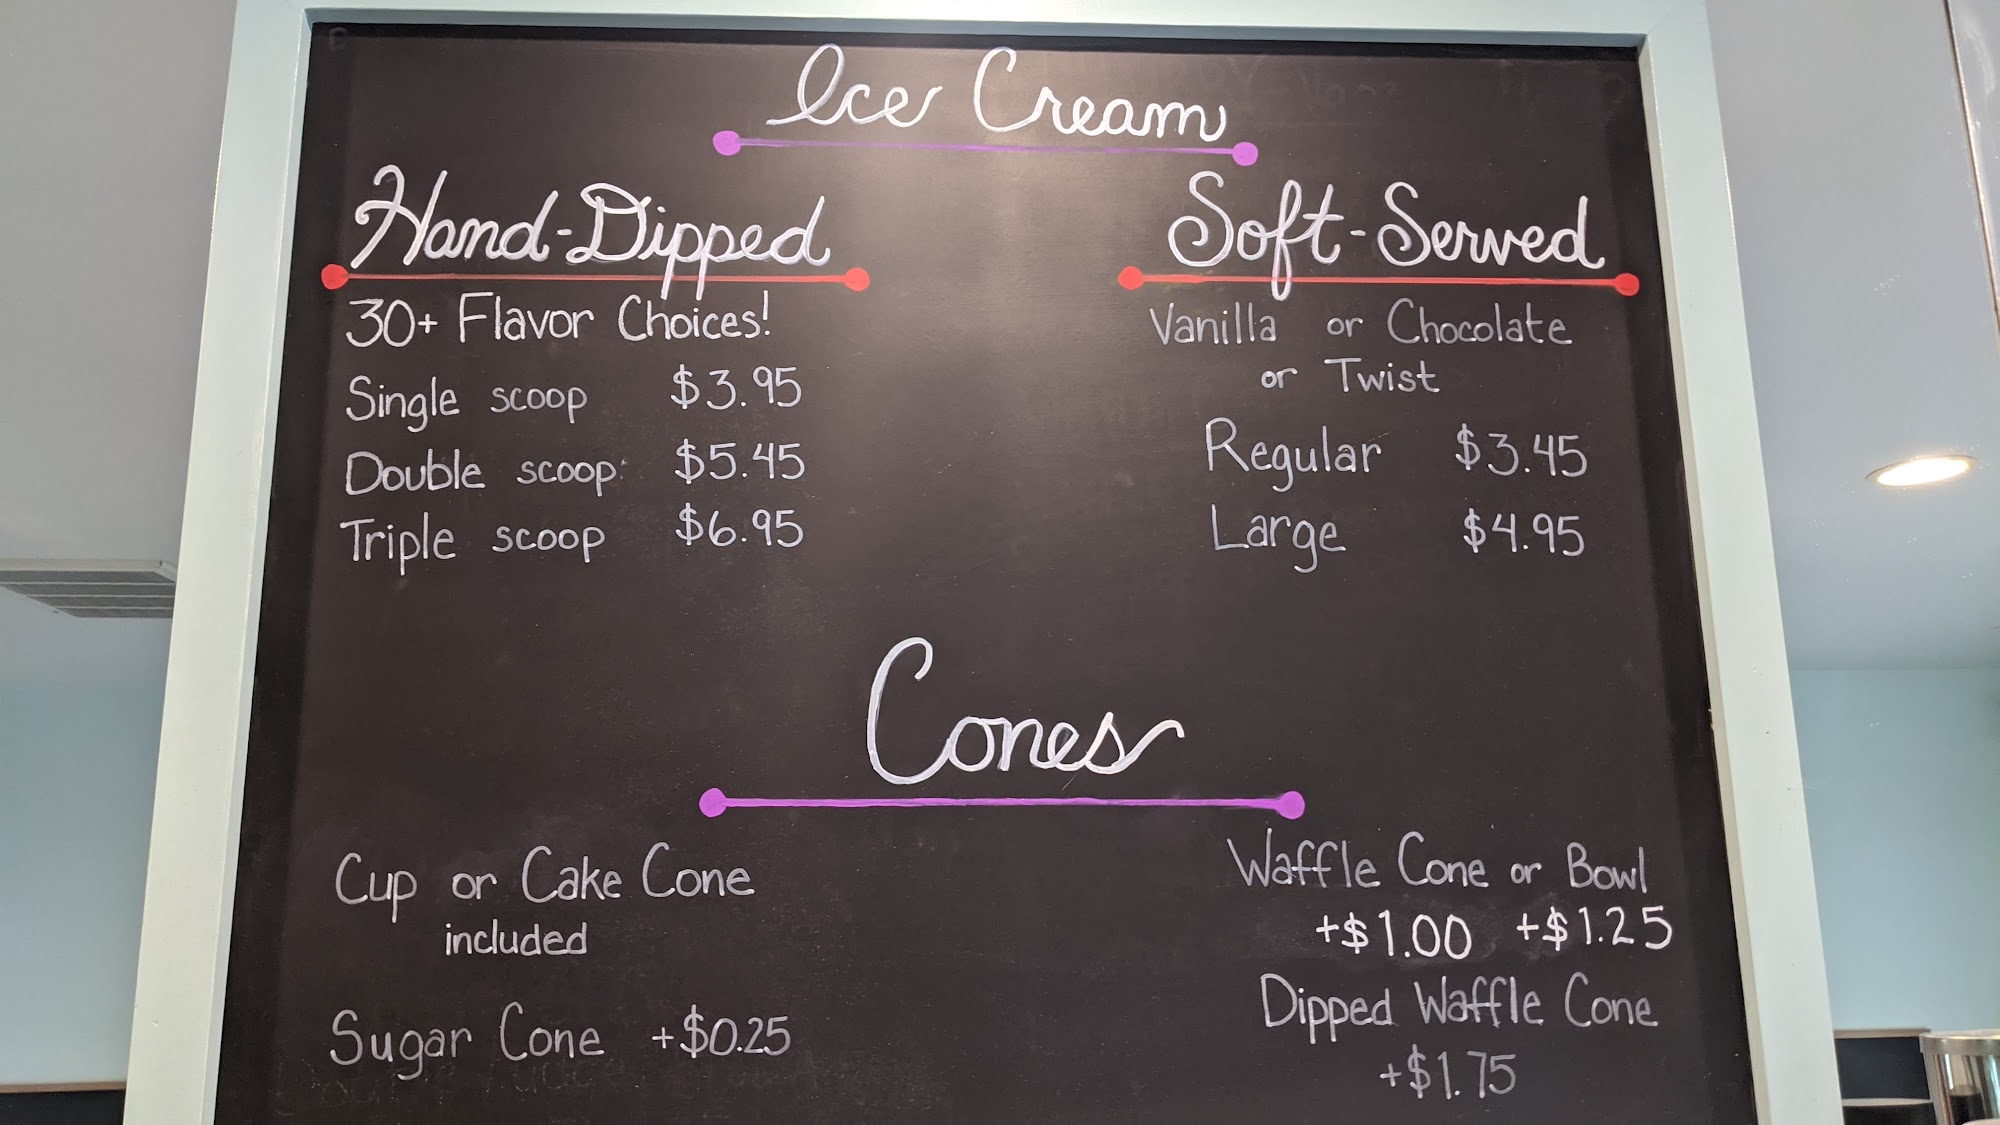 Ice Cream
Hand-Dipped
30+ Flavor Choices!
Single scoop $3.95
Double scoop $5.45
Triple scoop $6.95
Soft-Served
Vanilla or Chocolate
or Twist
Regular $3.45
Large $4.95
Cones
Cup or Cake Cone
included
Sugar Cone +$0.25
Waffle Cone or Bowl
+$1.00 +$1.25
Dipped Waffle Cone
+$1.75